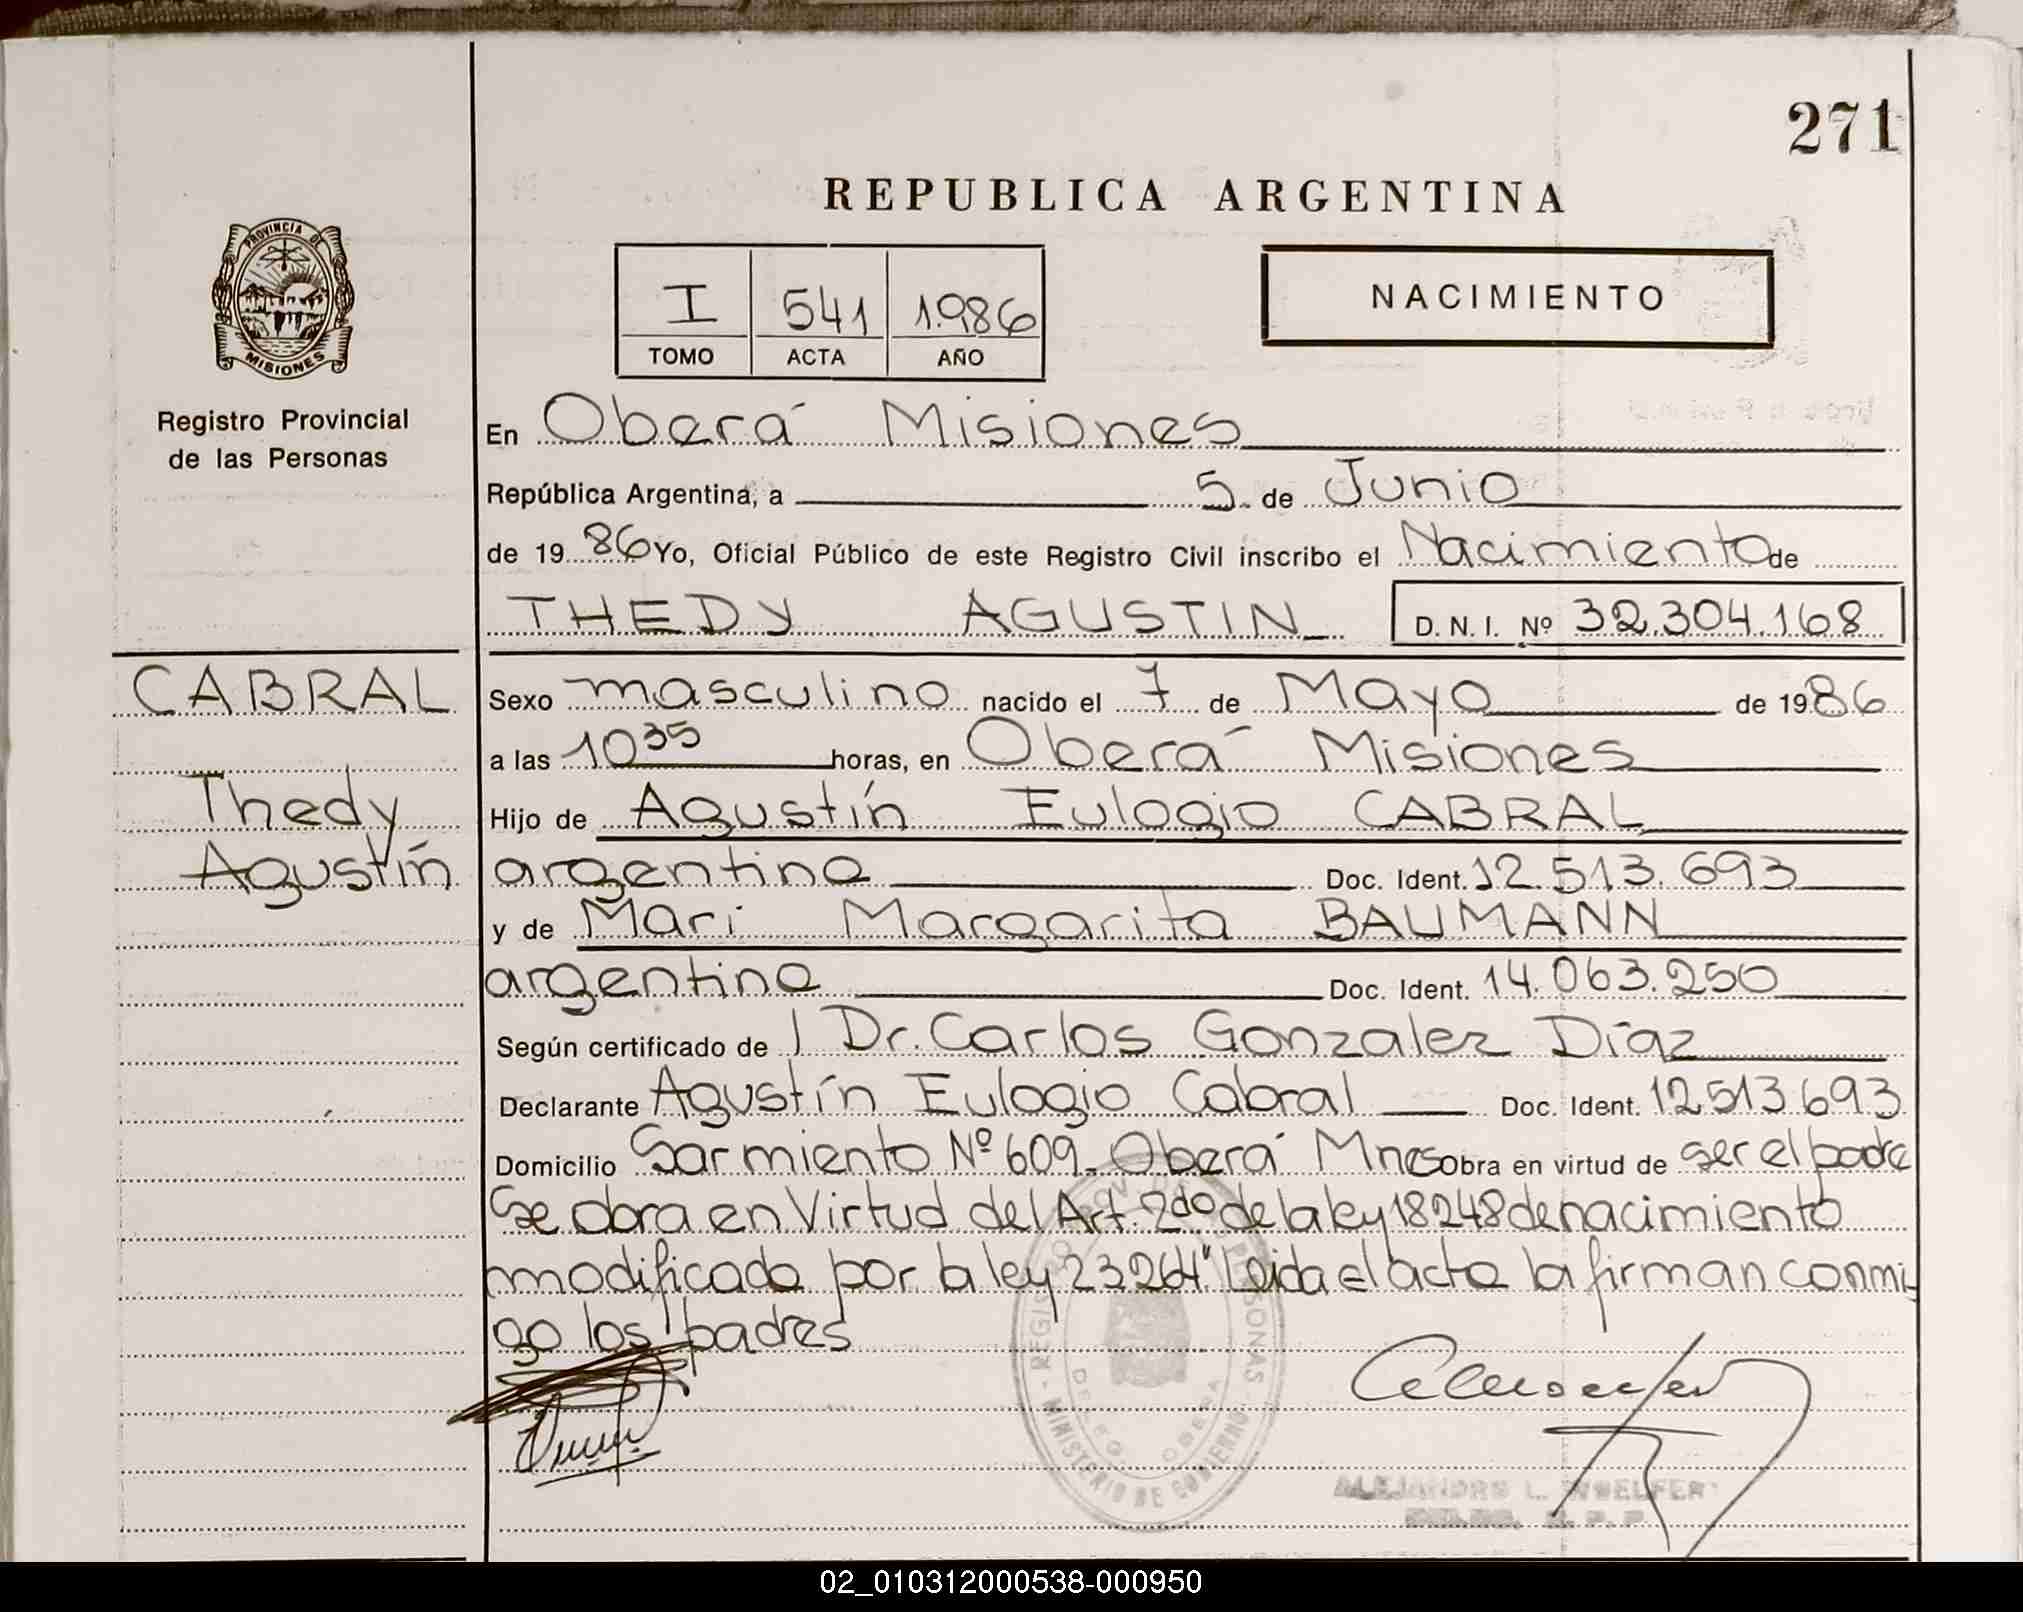 271
REPUBLICA ARGENTINA
PROVINCIA DE
MISIONES
I 541 1.986
TOMO ACTA AÑO
NACIMIENTO
Registro Provincial
de las Personas
En Oberá Misiones
República Argentina, a 5 de Junio
de 19 86 Yo, Oficial Público de este Registro Civil inscribo el Nacimiento de
THEDY AGUSTIN D. N. I. Nº 32.304.168
CABRAL
Thedy
Agustín
Sexo masculino nacido el 7 de Mayo de 1986
a las 10 35 horas, en Oberá Misiones
Hijo de Agustín Eulogio CABRAL
argentino Doc. Ident. 12.513.693
y de Mari Margarita BAUMANN
argentina Doc. Ident. 14.063.250
Según certificado de Dr. Carlos Gonzalez Díaz
Declarante Agustín Eulogio Cabral Doc. Ident. 12513693
Domicilio Sarmiento Nº 609 Oberá Mnes Obra en virtud de ser el padre
Se obra en Virtud del Art. 2do de la ley 18248 de nacimiento
modificado por la ley 23264" Leida el acta la firman conmi-
go los padres
REGISTRO PERSONAS
MINISTERIO DE GOBIERNO
DELEG. OBERA
ALEJANDRO L.
02_010312000538-000950